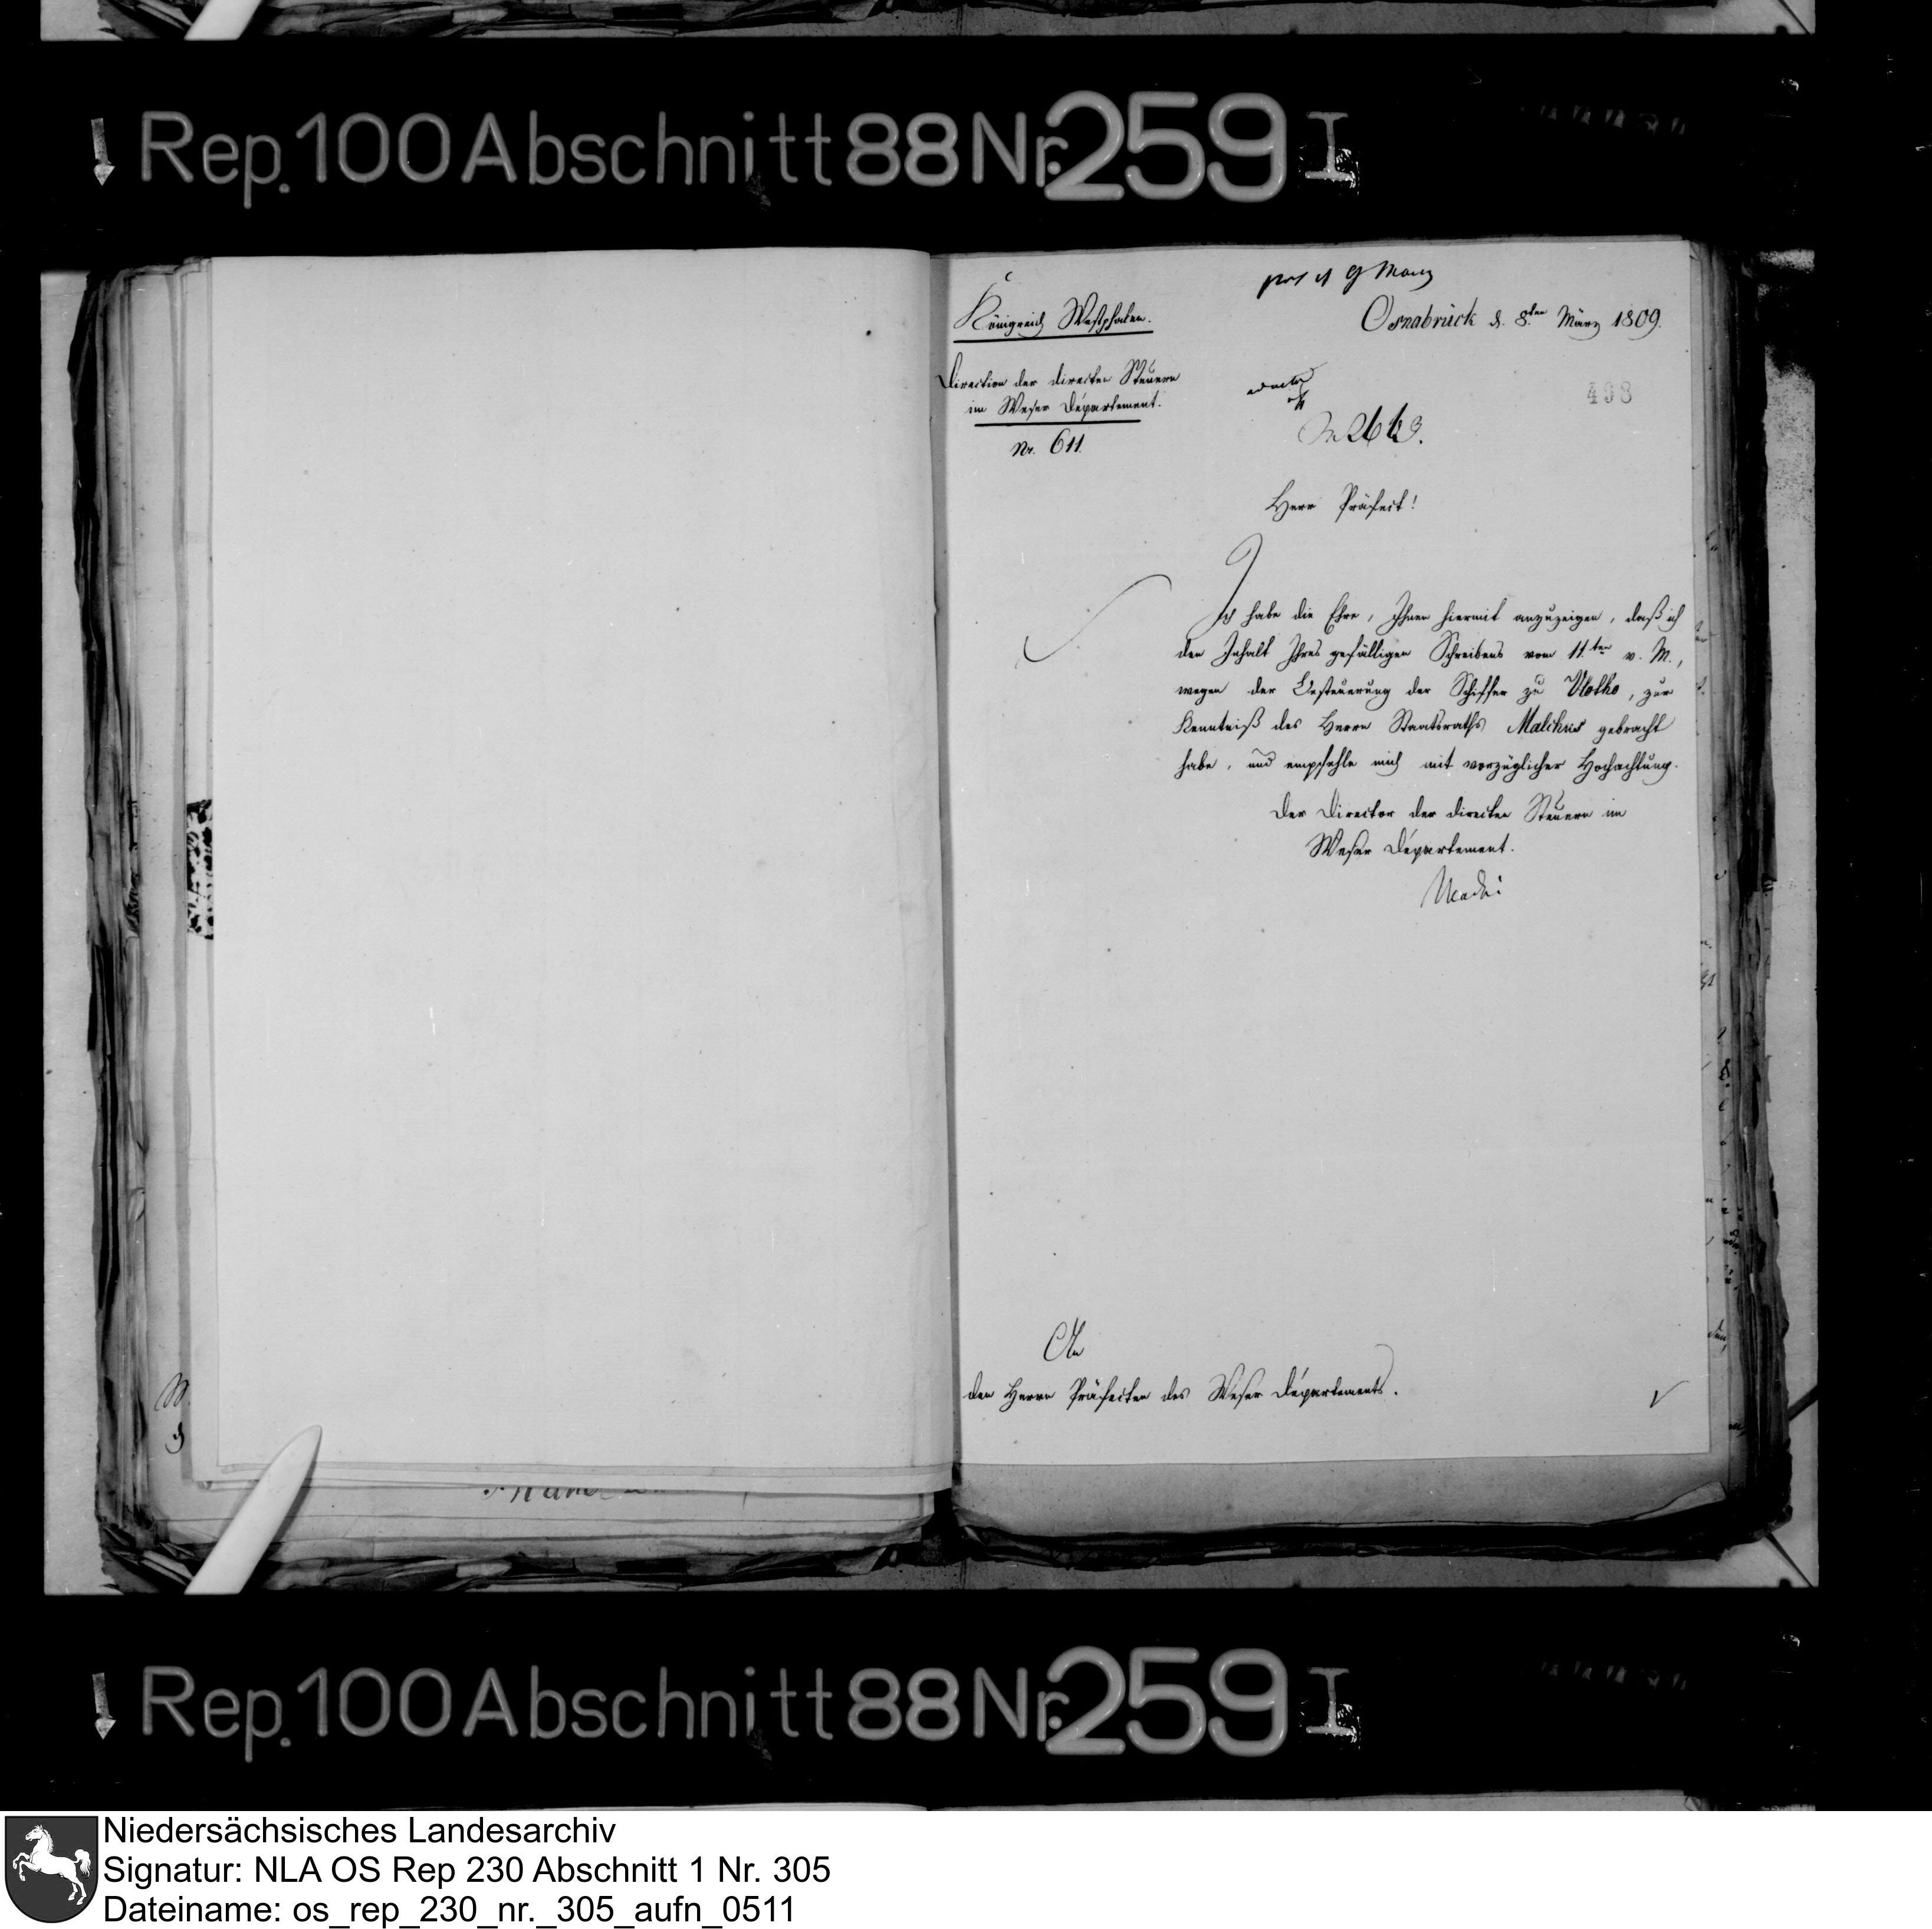 Rep. 100 Abschnitt 88 Nr. 259 I
Königreich Westphalen.
Direction der directen Steuern
im Weser Département.
Nr. 611.
9 März
Osnabrück d. 8ten März 1809.
498
2663.
Herr Präfect!
Ich habe die Ehre, Ihnen hiermit anzuzeigen, daß ich
den Inhalt Ihres gefälligen Schreibens vom 11.ten v. M.,
wegen der Besteuerung der Schiffer zu Vlotho, zur
Kenntniß des Herrn Staatsraths Malchus gebracht
habe, und empfehle mich mit vorzüglicher Hochachtung.
Der Director der directen Steuern im
Weser Département.
An
den Herrn Präfecten des Weser Départements.
Rep. 100 Abschnitt 88 Nr. 259 I
Niedersächsisches Landesarchiv
Signatur: NLA OS Rep 230 Abschnitt 1 Nr. 305
Dateiname: os_rep_230_nr._305_aufn_0511